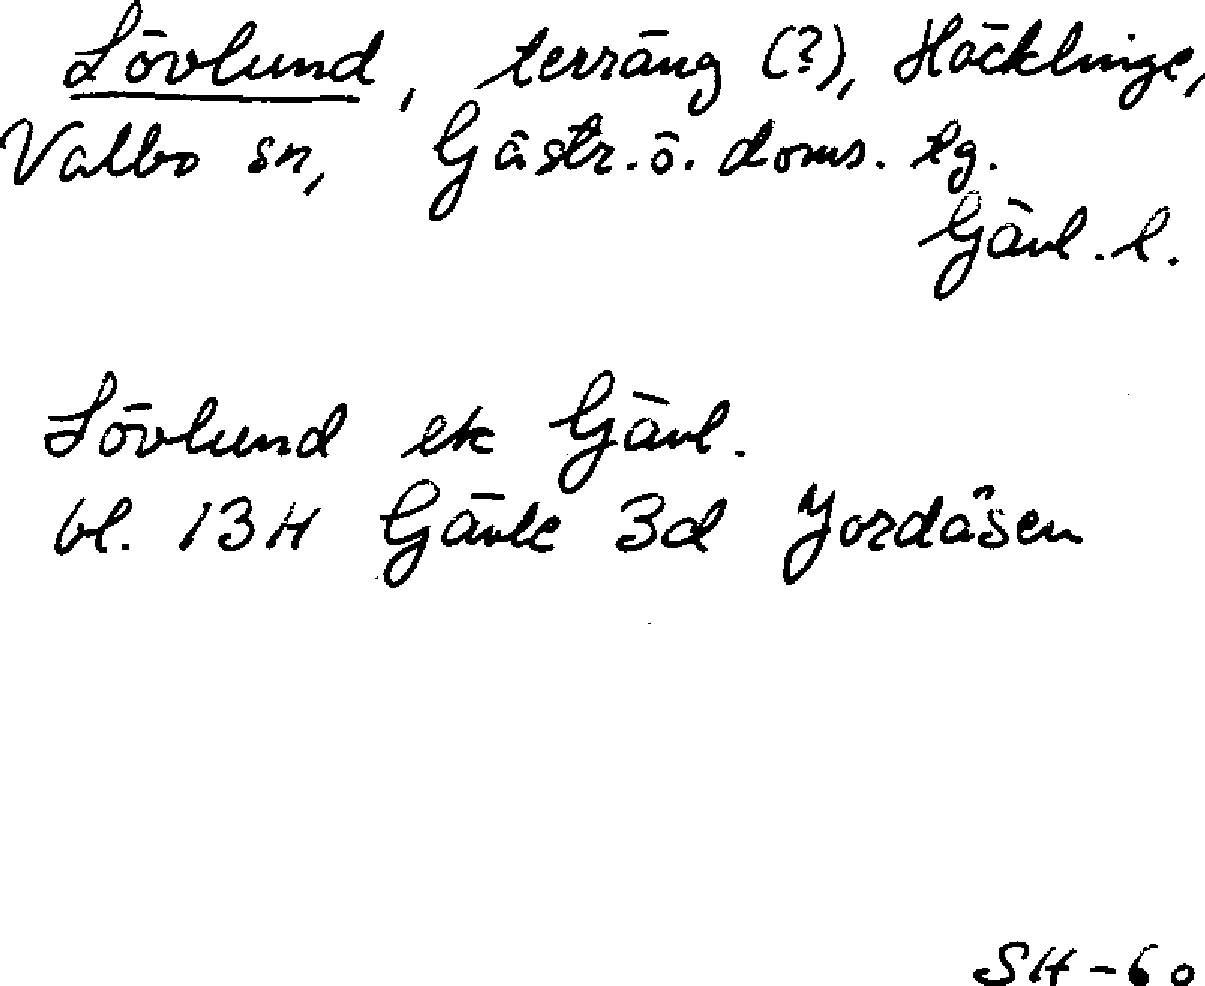 Lövlund, terräng (?), Häcklinge,
Valbo sn, Gästr. ö. doms. tg.
Gävl. l.
Lövlund ek Gävl.
bl. 13H Gävle 3d Jordåsen
SH-60